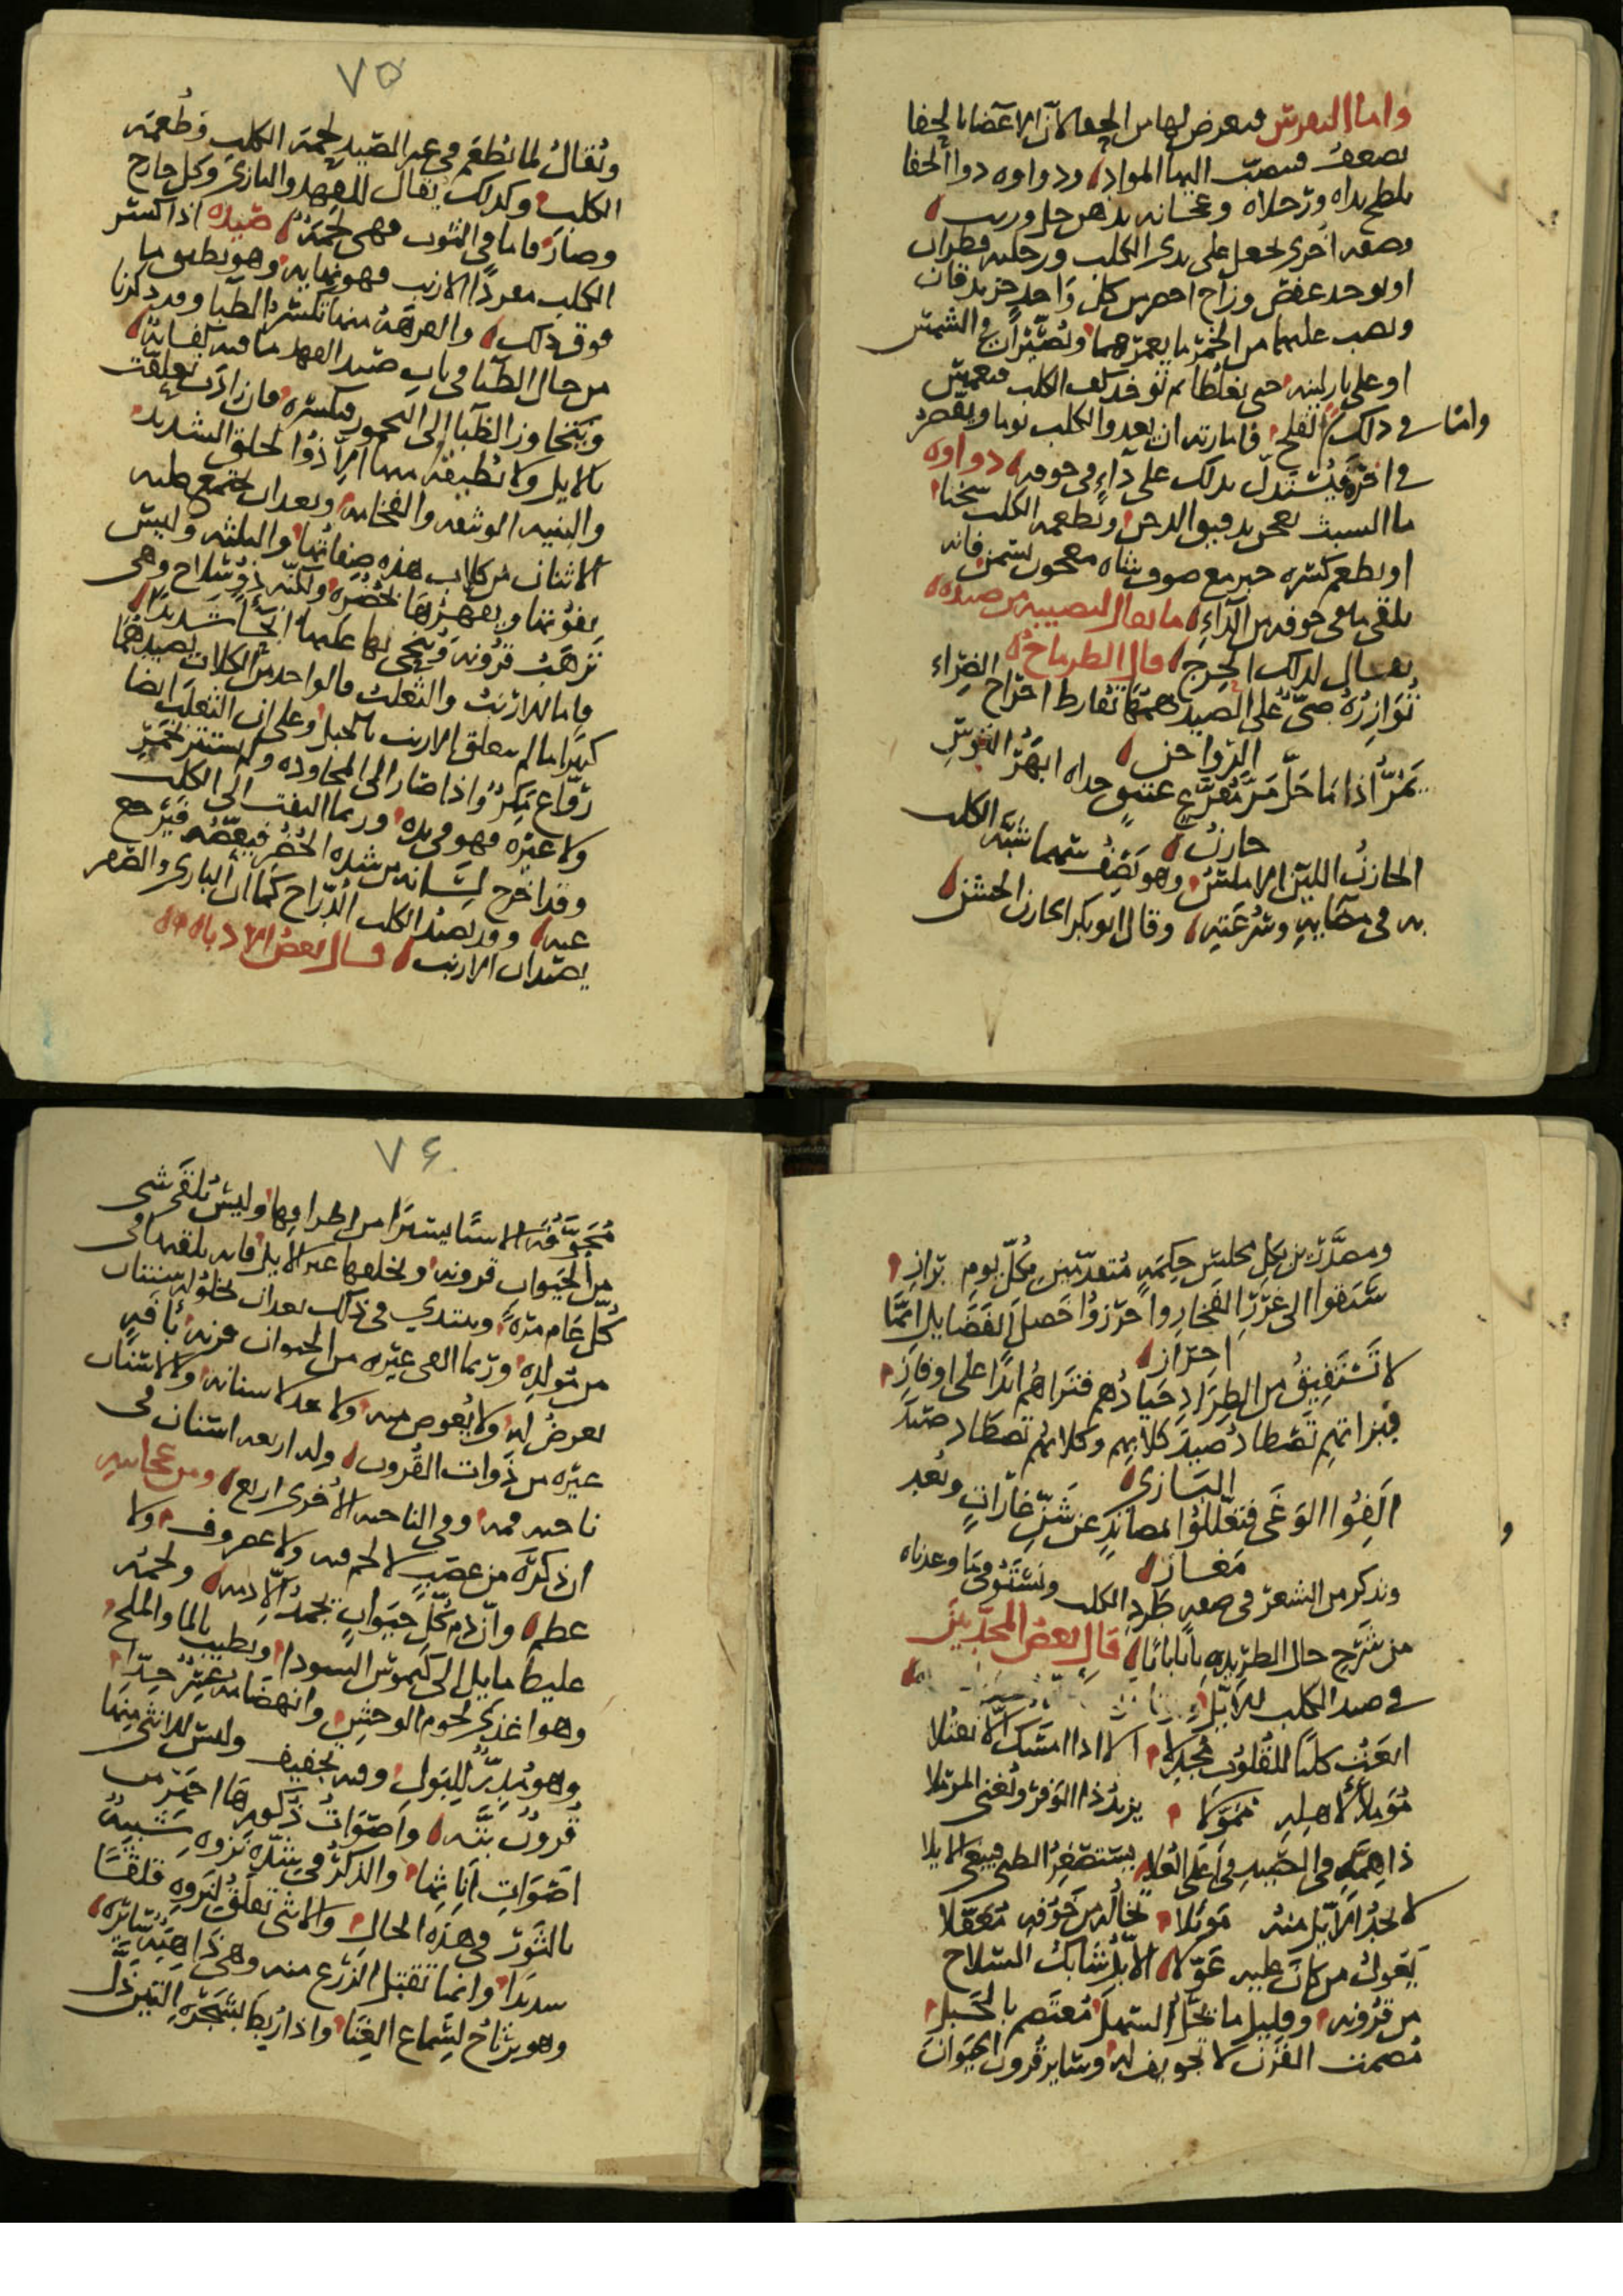 واما النقرس فيعرض لها من الحفا لان الاعضا بالحفا
تضعف فتنصب اليها المواد ودواوه دوا الحفا
يلطخ يداه ورجلاه وعجانه بدهن حل وزيت
وصفه اخرى يجعل على يدى الكلب ورجليه قطران
او يوخذ عفص وزاج اخضر من كل واحد جز يدقان
ويصب عليهما من الخمر ما يغمرهما ويصيران فى الشمس
او على نار لينه حتى يغلظا ثم توخذ كف الكلب فتغمس
فى ذلك واما القلح فامارته ان يعدو الكلب يوما ويقصر
فى اخر فيستدل بذلك على داء فى جوفه دواوه
ما السبت يعجن بدقيق الدخن ويطعمه الكلب سخنا
او يطعم كسره خبز مع صوف شاه معجون بسمن فانه
يلقى ما فى جوفه من الداء ما يقال لنصيبه من صيده
يقال لذلك الحرج قال الطرماح
توازره صى على الصيد همها تفارط احراج الضراء
الدواجن
يمر اذا ما حل مر مقزع عتيق حداه ابهر القوس
جارن
الجارن اللين الاملس وهو يصف سهما شبه الكلب
به فى مضايه وسرعته وقال ابو بكر الجارن الخشن
٧٥
ويقال لما يطعم فى غير الصيد لحمة الكلب وطعمة
الكلب وكذلك يقال للفهد والبازى وكل جارح
وصار فاما فى الثوب فهى لحمة صيده اذا كسر
الكلب مفردا الارنب فهو نهايه وهو يطيق ما
فوق ذلك والفرهة منها تكسر الظبا وقد ذكرنا
من حال الظبا فى باب صيد الفهد ما فيه كفاية
ويتجاوز الظبا الى اليحمور فيكسره فان زادت تعلقت
بالايل ولا تطيقه منها الا ذو الخلق الشديد
والبنيه الوثيقه والفخامه وبعد ان يجتمع عليه
الاثنان من كلاب هذه صفاتها والثلثه وليس
يفوتها ويقهرها بحضره ولكنه ذو سلاح وهى
ترهب قرونه وينحى بها عليها انحاء شديدا
فاما الارنب والثعلب فالواحد من الكلاب يصيدهما
كثيرا ما لم يتعلق الارنب بالجبل وعلى ان الثعلب ايضا
رواغ مكر واذا صار الى المجاوده ولم يستتر بخمر
ولا غيره فهو فى يده وربما التفت الى الكلب
وقد اخرج لسانه من شده الحضر فيعضه فيرجع
عنه وقد يصيد الكلب الدراج كما ان البازى والصقر
يصيدان الارنب قال بعض الادباء
ومصدرين بكل مجلس حكمة متقدمين بكل يوم براز
سبقوا الى غرر الفخار واحرزوا خصل الفضايل ايما
احراز
لا تستفيق من الطراد جيادهم فتراهم ابدا على اوفاز
فبزاتهم تصطاد صيد كلابهم وكلابهم تصطاد صيد
البازى
الفوا الوغى فتعللوا بمصائد عن شن غارات وبعد
مغاز
ونذكر من الشعر فى صفه طرد الكلب ونستوفى ما وعدناه
من شرح حال الطريده بابا بابا قال بعض المحدثين
فى صيد الكلب للايل
انعت كلبا للقلوب مجذلا الا اذا امسك الا يقتلا
موملا لاهله ممولا يزيد ذا الوفر ويغنى المرملا
ذا همة فى الصيد فى اعلى العلا يستصغر الظبى فيبغى الايلا
لا يجد الايل منه موئلا يخاله من خوفه معقلا
يعول من كان عليه عولا الايل شابك السلاح
من قرونه وقليل ما يحل السهل معتصم بالجبل
مصمت القرن لا تجويف له وساير قرون الحيوان
٧٦
مجوفة الا شيئا يسيرا من اطرافها وليس يلقى شى
من الحيوان قرونه ويخلعها غير الايل فانه يلقيها فى
كل عام مرة ويبتدي فى ذلك بعد ان تخلو له سنتان
من مولده وربما القى غيره من الحيوان قرنه بافة
تعرض له ولا يعوض منه ولا عدد لاسنانه ولا لاسنان
غيره من ذوات القرون وله اربعه اسنان فى
ناحيه فمه وفى الناحيه الاخرى اربع ومن عجايبه
ان ذكره من عصب لا لحم فيه ولا غضروف ولا
عظم وان دم كل حيوان يجمد الا دمه ولحمه
غليظ مايل الى كيموس السودا ويطيب بالما والملح
وهو اغذى لحوم الوحش وانهضامه عسر جدا
وهو مدر للبول وفيه تجفيف وليس للانثى منها
قرون بتة واصوات ذكورها اجهر من
اصوات اناثها والذكر فى شده نزوه شبيه
بالثور فى هذه الحال والانثى تقلق لنزوه قلقا
شديدا وانما تقبل الزرع منه وهى ذاهبة سايره
وهو يرتاح لسماع الغنا واذا ربط بشجرة التين ذل